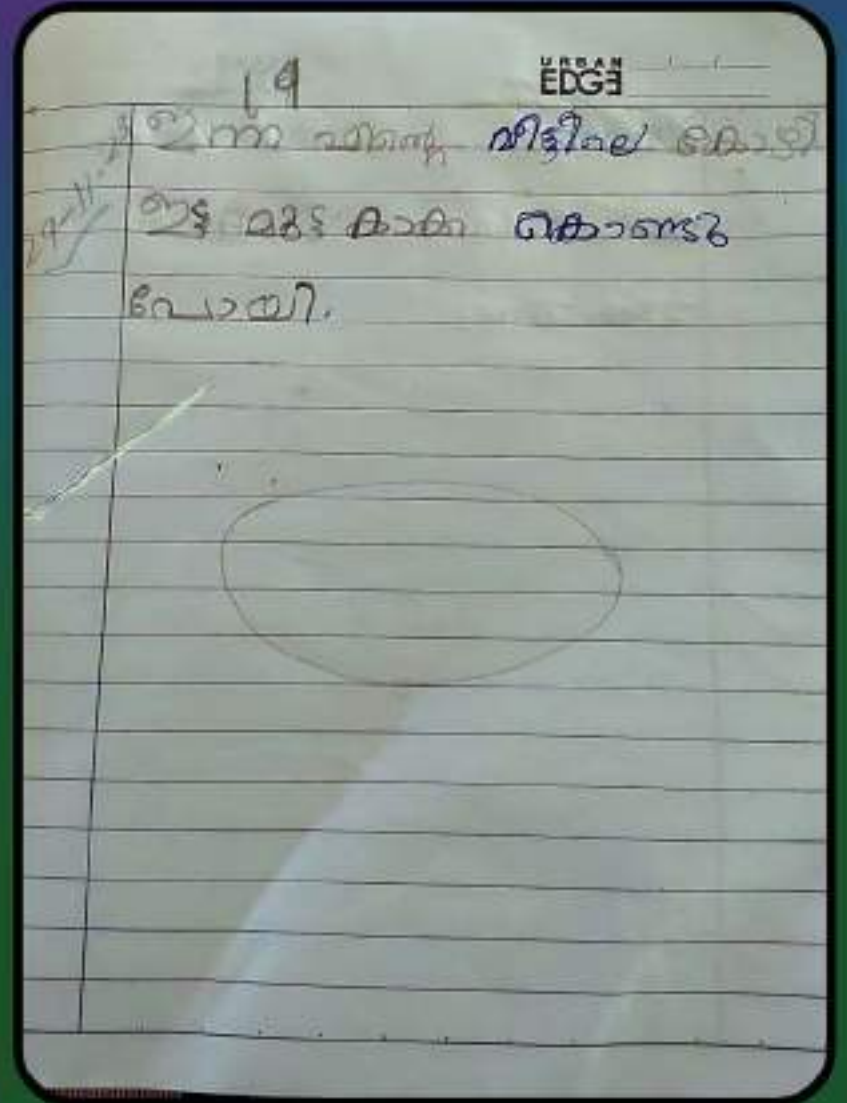 19
URBAN EDGE
ഇന്ന എന്റെ വീട്ടിലെ കോഴി
ഇട്ട മുട്ട കാക്ക കൊണ്ടു
പോയി.